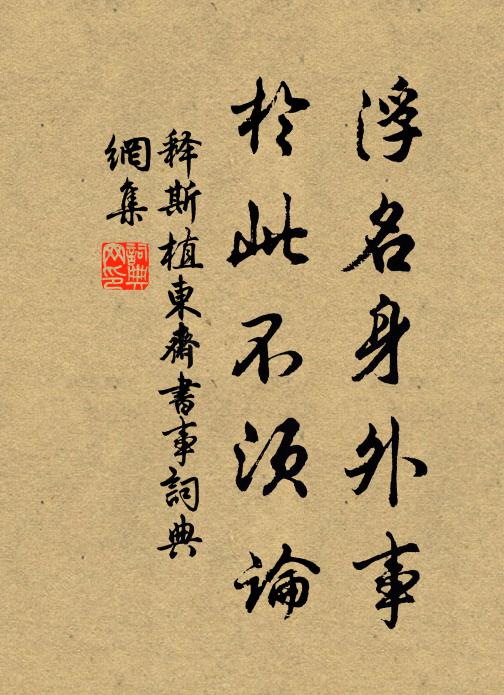 浮名身外事
於此不須論
释斯植東齋書事詞典
網集
詞典
网印